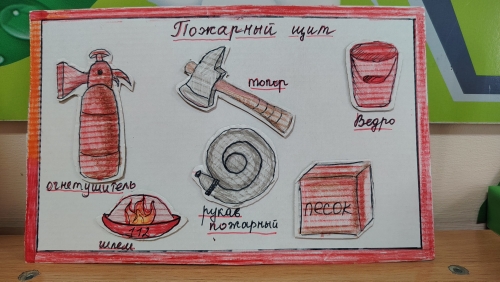 Пожарный щит
топор
Ведро
огнетушитель
рукав
пожарный
песок
112
шлем